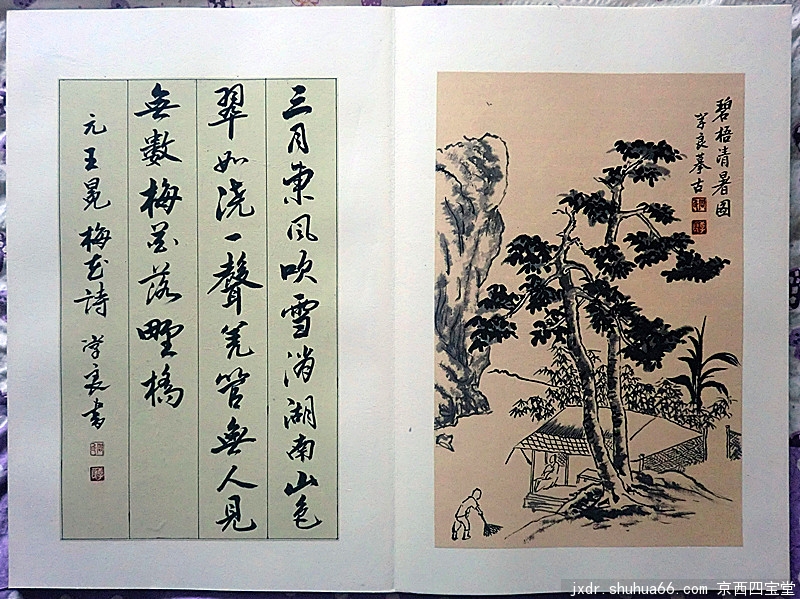 三月東風吹雪消湖南山色
翠如浇一聲羌管無人見
無數梅花落野橋
元王冕梅花詩 学良書
碧梧清暑圖
学良摹古
jxdr.shuhua66.com 京西四宝堂